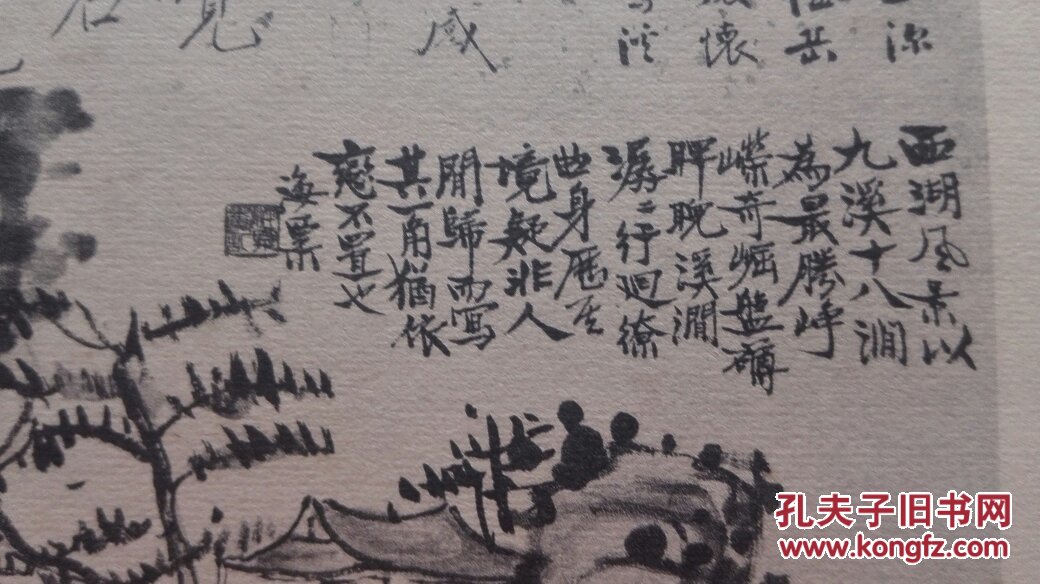 深
岳
懷
溪
感
見
西湖風景以
九溪十八澗
為最勝崢
嶸奇崛盤礴
睥睨溪澗
潺潺行迴繚
曲身歷其
境疑非人
間歸而寫
其一角猶依
戀不置也
海粟
孔夫子旧书网
www.kongfz.com